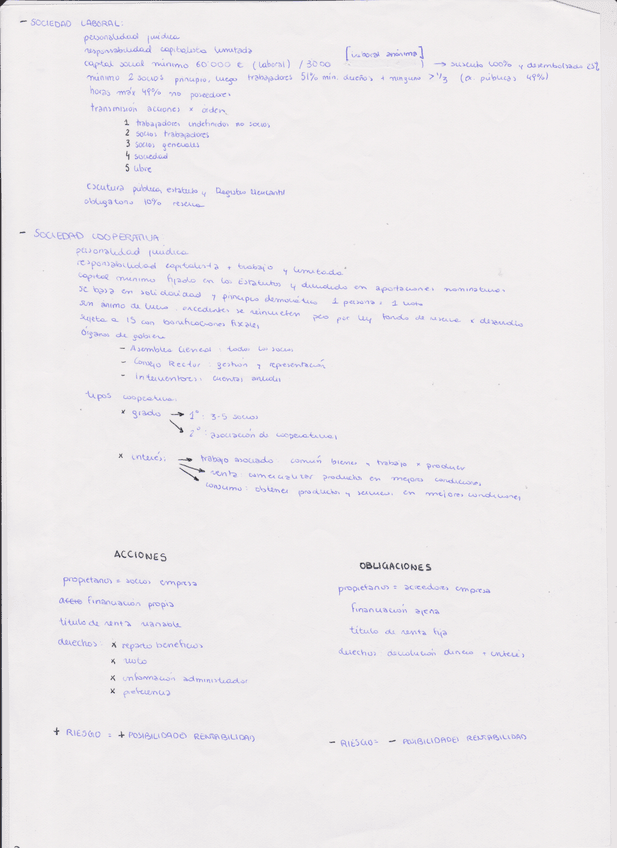 - SOCIEDAD LABORAL:
personalidad jurídica
responsabilidad capitalista limitada
capital social mínimo 60 000 € (laboral) / 3000 [laboral anónima] → suscrito 100% y desembolsado 25%
mínimo 2 socios principio, luego trabajadores 51% min. dueños + ninguno > 1/3 (a. públicas 49%)
horas máx 49% no poseedores
transmisión acciones x orden,
1 trabajadores indefinidos no socios
2 socios trabajadores
3 socios generales
4 sociedad
5 libre
escritura pública, estatuto y Registro Mercantil
obligatorio 10% reserva
- SOCIEDAD COOPERATIVA:
personalidad jurídica
responsabilidad capitalista + trabajo y limitada
capital mínimo fijado en los Estatutos y dividido en aportaciones nominativas
se basa en solidaridad y principio democrático 1 persona: 1 voto
sin ánimo de lucro: excedentes se reinvierten pero por ley fondo de reserva + desarrollo
sujeta a IS con bonificaciones fiscales
Órganos de gobierno
- Asamblea General: todos los socios
- Consejo Rector: gestión y representación
- Interventores: cuentas anuales
tipos cooperativa:
x grado → 1º: 3-5 socios
→ 2º: asociación de cooperativas
x interés: → trabajo asociado común bienes y trabajo x producir
→ venta comercializar productos en mejores condiciones
→ consumo: obtener productos y servicios en mejores condiciones
ACCIONES
propietarios = socios empresa
financiación propia
título de renta variable
derechos: x reparto beneficios
x voto
x información administrador
x preferencia
+ RIESGO = + POSIBILIDADES RENTABILIDAD
OBLIGACIONES
propietarios = acreedores empresa
financiación ajena
título de renta fija
derechos devolución dinero + interés
- RIESGO = - POSIBILIDADES RENTABILIDAD